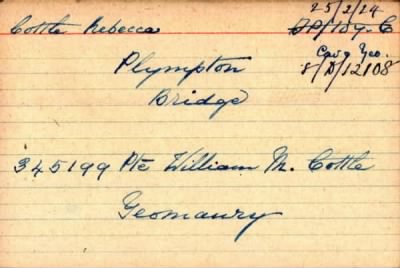 25/2/24
Cottle Rebecca
Cav & Yeo.
8/D/12108
Plympton
Bridge
345199 Pte William M. Cottle
Yeomanry